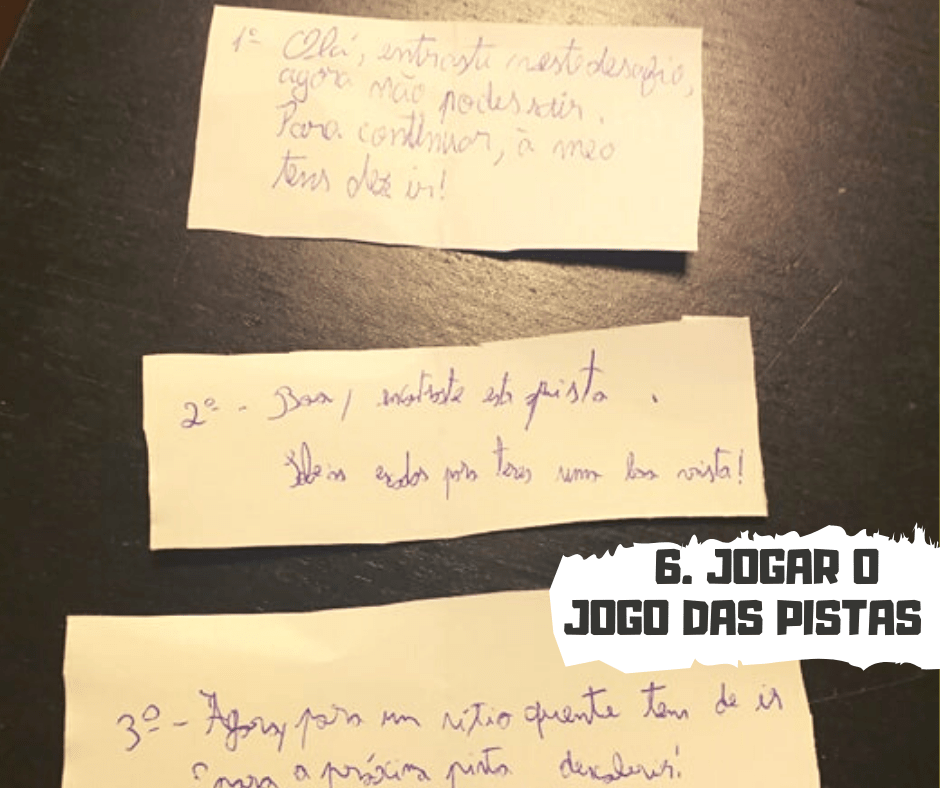 1º Olá, entraste neste desafio,
agora não podes sair.
Para continuar, à meo
tens de ir!
2º - Boa, encontraste esta pista.
Sobe as escadas para teres uma boa vista!
6. JOGAR O
JOGO DAS PISTAS
3º - Agora, para um sítio quente tens de ir
para a próxima pista descobrir!